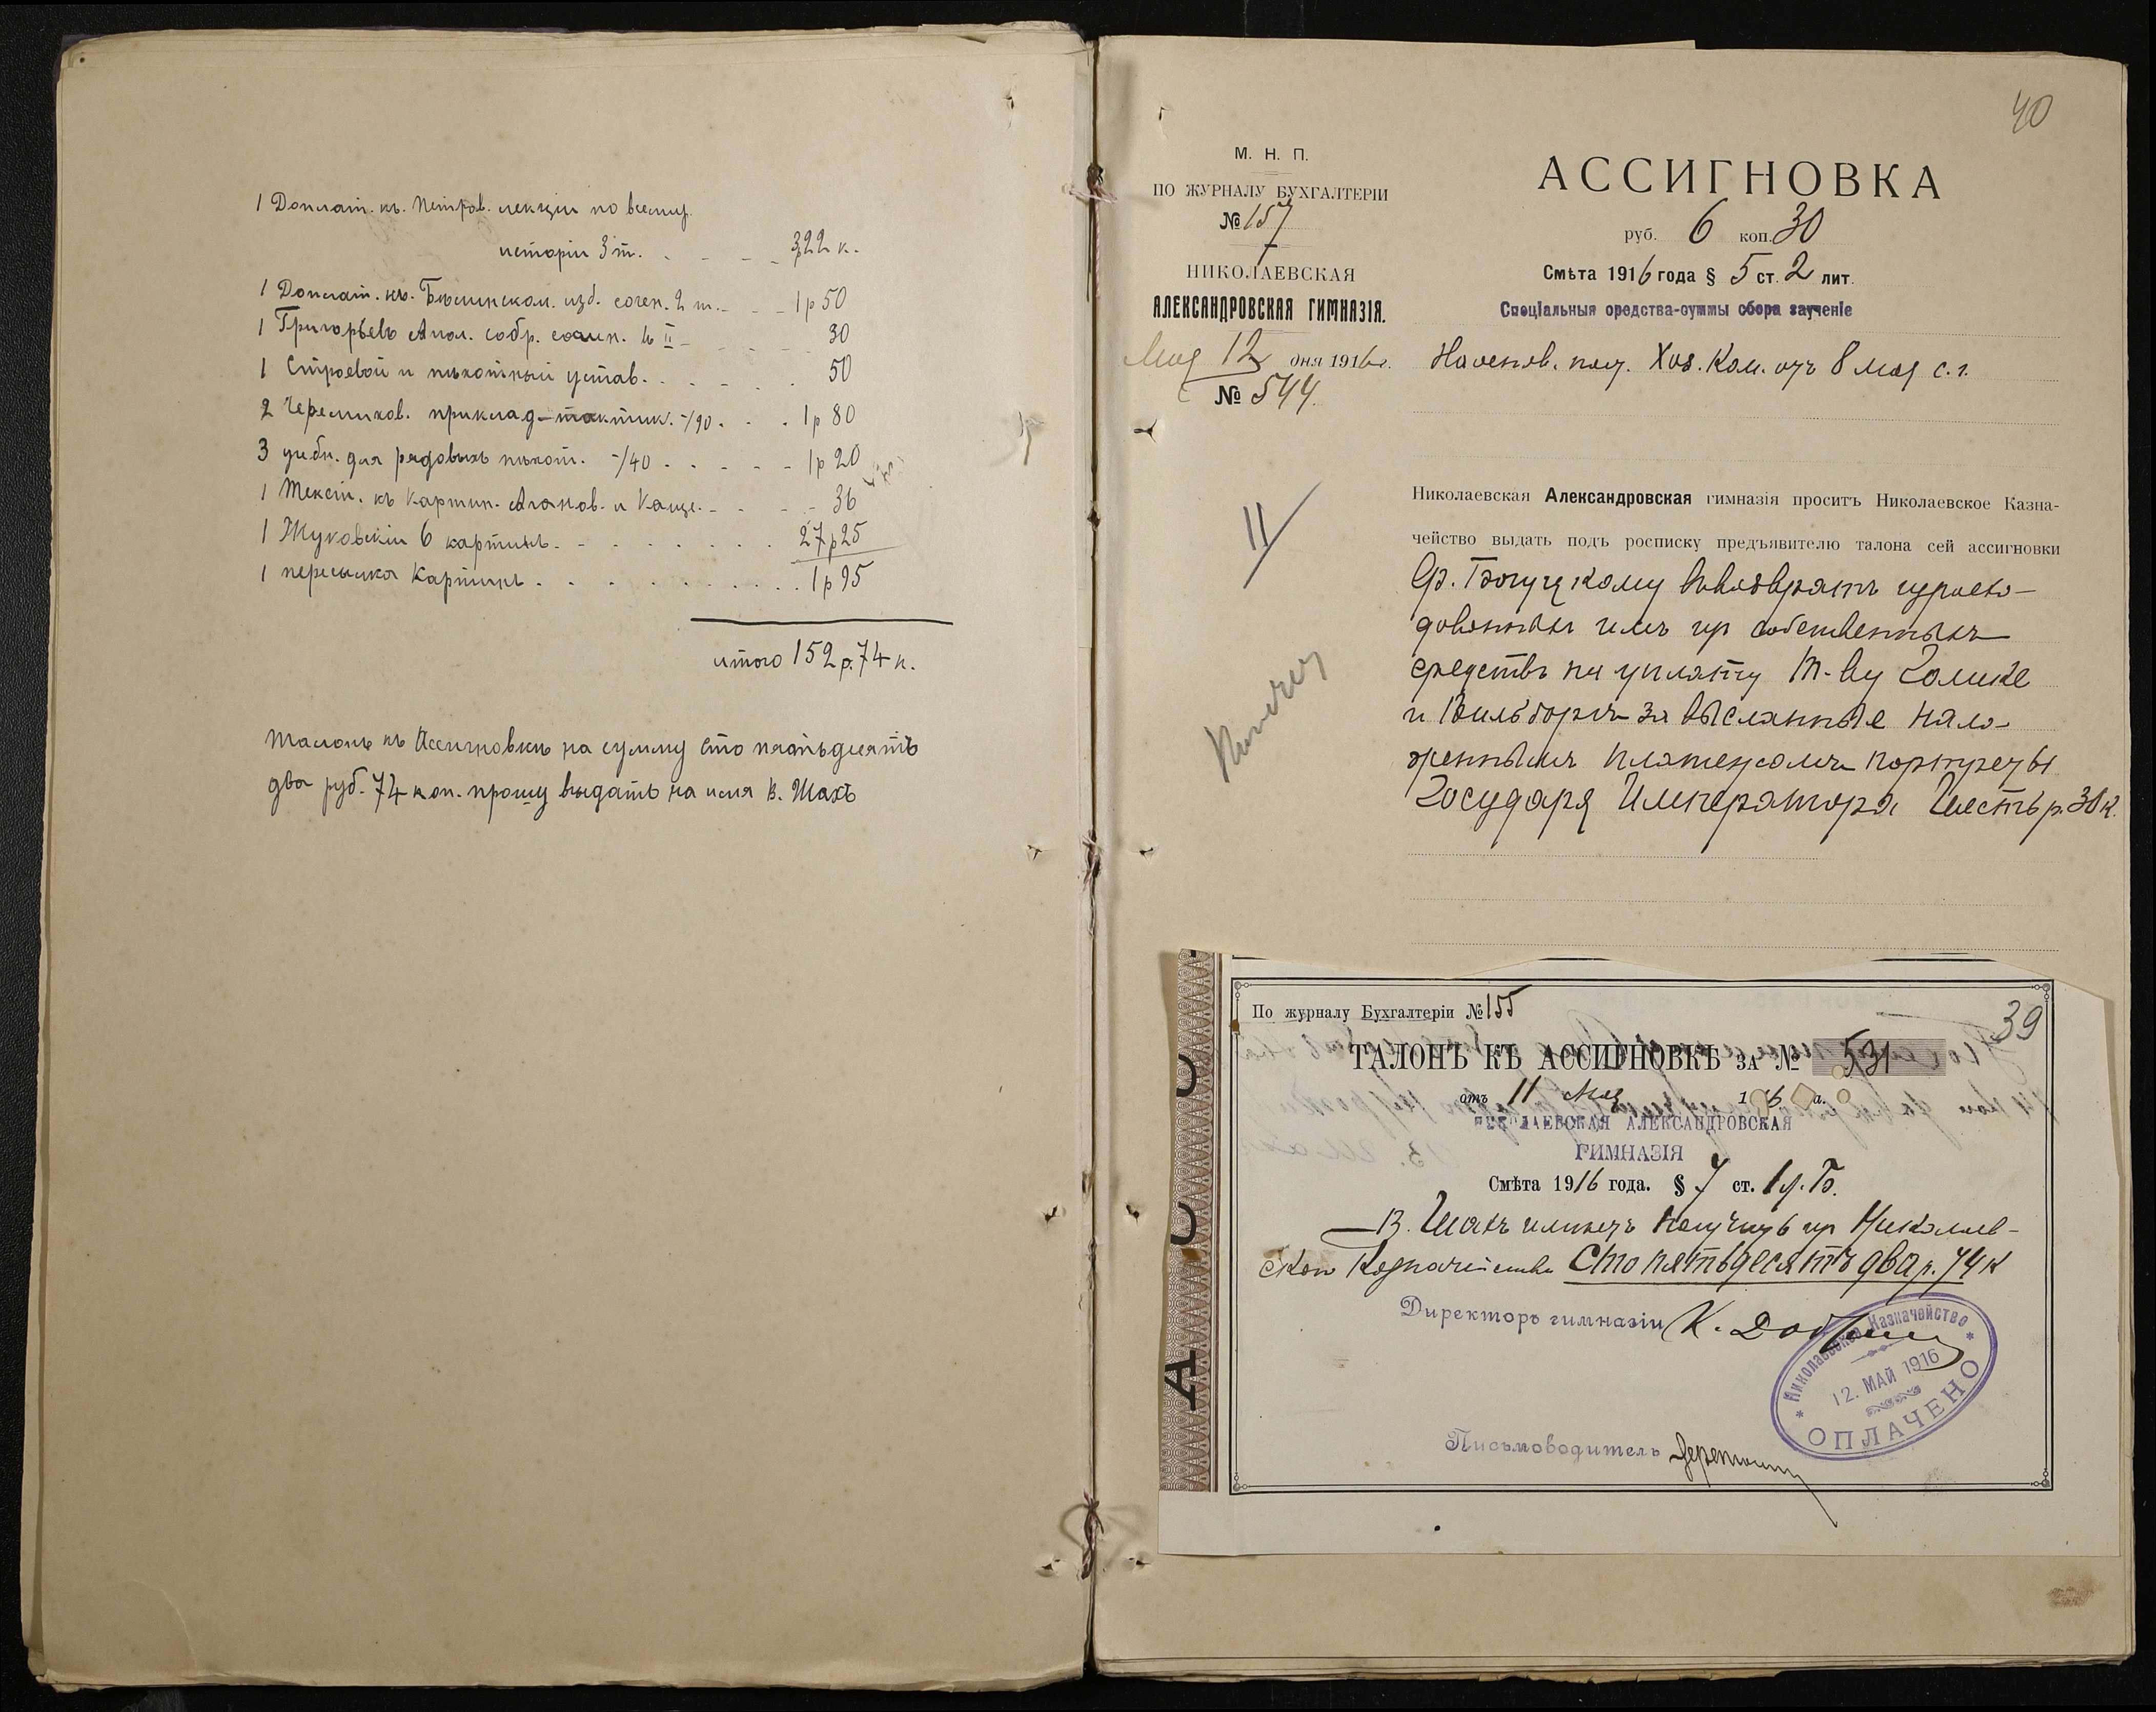 1 Доплат. къ. Петров. лекціи по всему.
исторіи 3 т. . - - - 3р22 к.
1 Доплат. къ. Бѣлинском. изд. сочен. 2 т. - - - 1 р 50
1 Григорьевъ Апол. собр. сочин. в II - - - - 30
1 Строевой и пѣхотный устав. - - - - . 50
2 Черемисов. приклад-тактик. -/90 . . . 1 р 80
3 учебн. для рядовыхъ пѣхот. -/40 . . . . - 1 р 20
1 Текст. къ картин. и - - - - 36
1 Жуковскій 6 картинъ. - - - - - - . 27 р 25
1 пересылка Картинъ . . . . . . . . . . 1 р 95
итого 152 р. 74 к.
талонъ къ Ассигновкѣ на сумму сто пятьдесятъ
два руб. 74 коп. прошу выдать на имя В. Шахъ
40
М. Н. П.
ПО ЖУРНАЛУ БУХГАЛТЕРІИ
№ 157
НИКОЛАЕВСКАЯ
АЛЕКСАНДРОВСКАЯ ГИМНАЗІЯ.
Мая 12 дня 1916 г.
№ 544.
11
АССИГНОВКА
руб. 6 коп. 30
Смѣта 1916 года § 5 ст. 2 лит.
Спеціальныя средства-суммы сбора за ученіе
На основ. пост. Хоз. Ком. отъ 8 мая с. г.
Николаевская Александровская гимназія проситъ Николаевское Казна-
чейство выдать подъ росписку предъявителю талона сей ассигновки
въ возвратъ израсхо-
дованныхъ имъ изъ собственныхъ
средствъ на уплату Т-ву Голике
и Вильборгъ за высланные нало-
женнымъ платежомъ портреты
Государя Императора Шесть р. 30 к.
По журналу Бухгалтеріи № 155
39
ТАЛОНЪ КЪ АССИГНОВКѢ ЗА № 531
отъ 11 Мая 1916 а.
НИКОЛАЕВСКАЯ АЛЕКСАНДРОВСКАЯ
ГИМНАЗІЯ
Смѣта 1916 года. § 7 ст. 1 л. Б.
В. Шахъ имѣетъ получить изъ Николаев-
скаго Казначейства Сто пятьдесятъ два р. 74 к
Директоръ гимназіи К.
Николаевское Казначейство
12. МАЙ 1916
ОПЛАЧЕНО
Письмоводитель